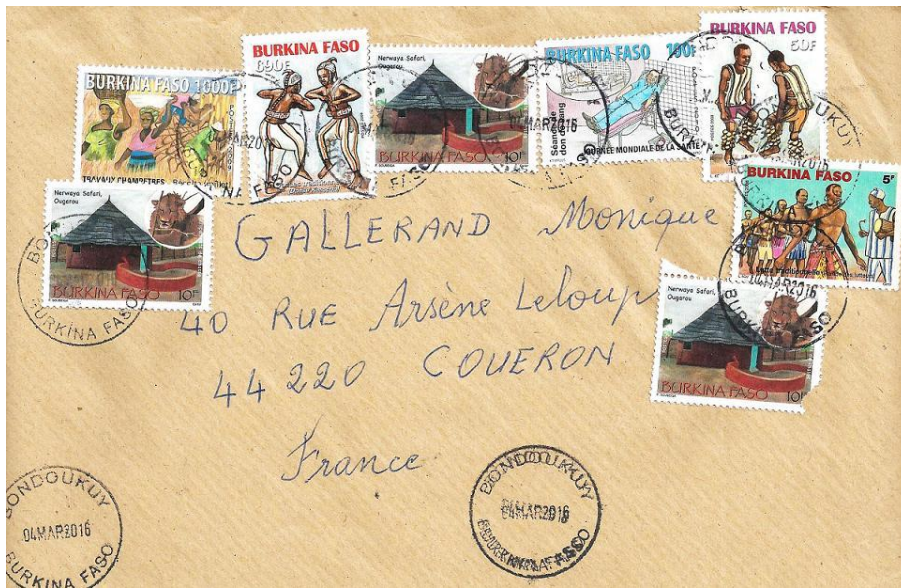 BURKINA FASO 1000F
TRAVAUX CHAMPETRES
BURKINA FASO
690F
Nerwaya Safari,
Ougarou
BURKINA FASO 10F
BURKINA FASO 100F
Séance de
don de sang
JOURNEE MONDIALE DE LA SANTE
BURKINA FASO
50F
BURKINA FASO 5F
Lutte traditionnelle
04MAR2016
Nerwaya Safari,
Ougarou
BURKINA FASO 10F
BURKINA FASO
Nerwaya Safari,
Ougarou
BURKINA FASO 10F
GALLERAND Monique
40 RUE Arsène Leloup
44220 COUERON
France
BONDOUKUY
04MAR2016
BURKINA FASO
BONDOUKUY
04MAR2016
BURKINA FASO